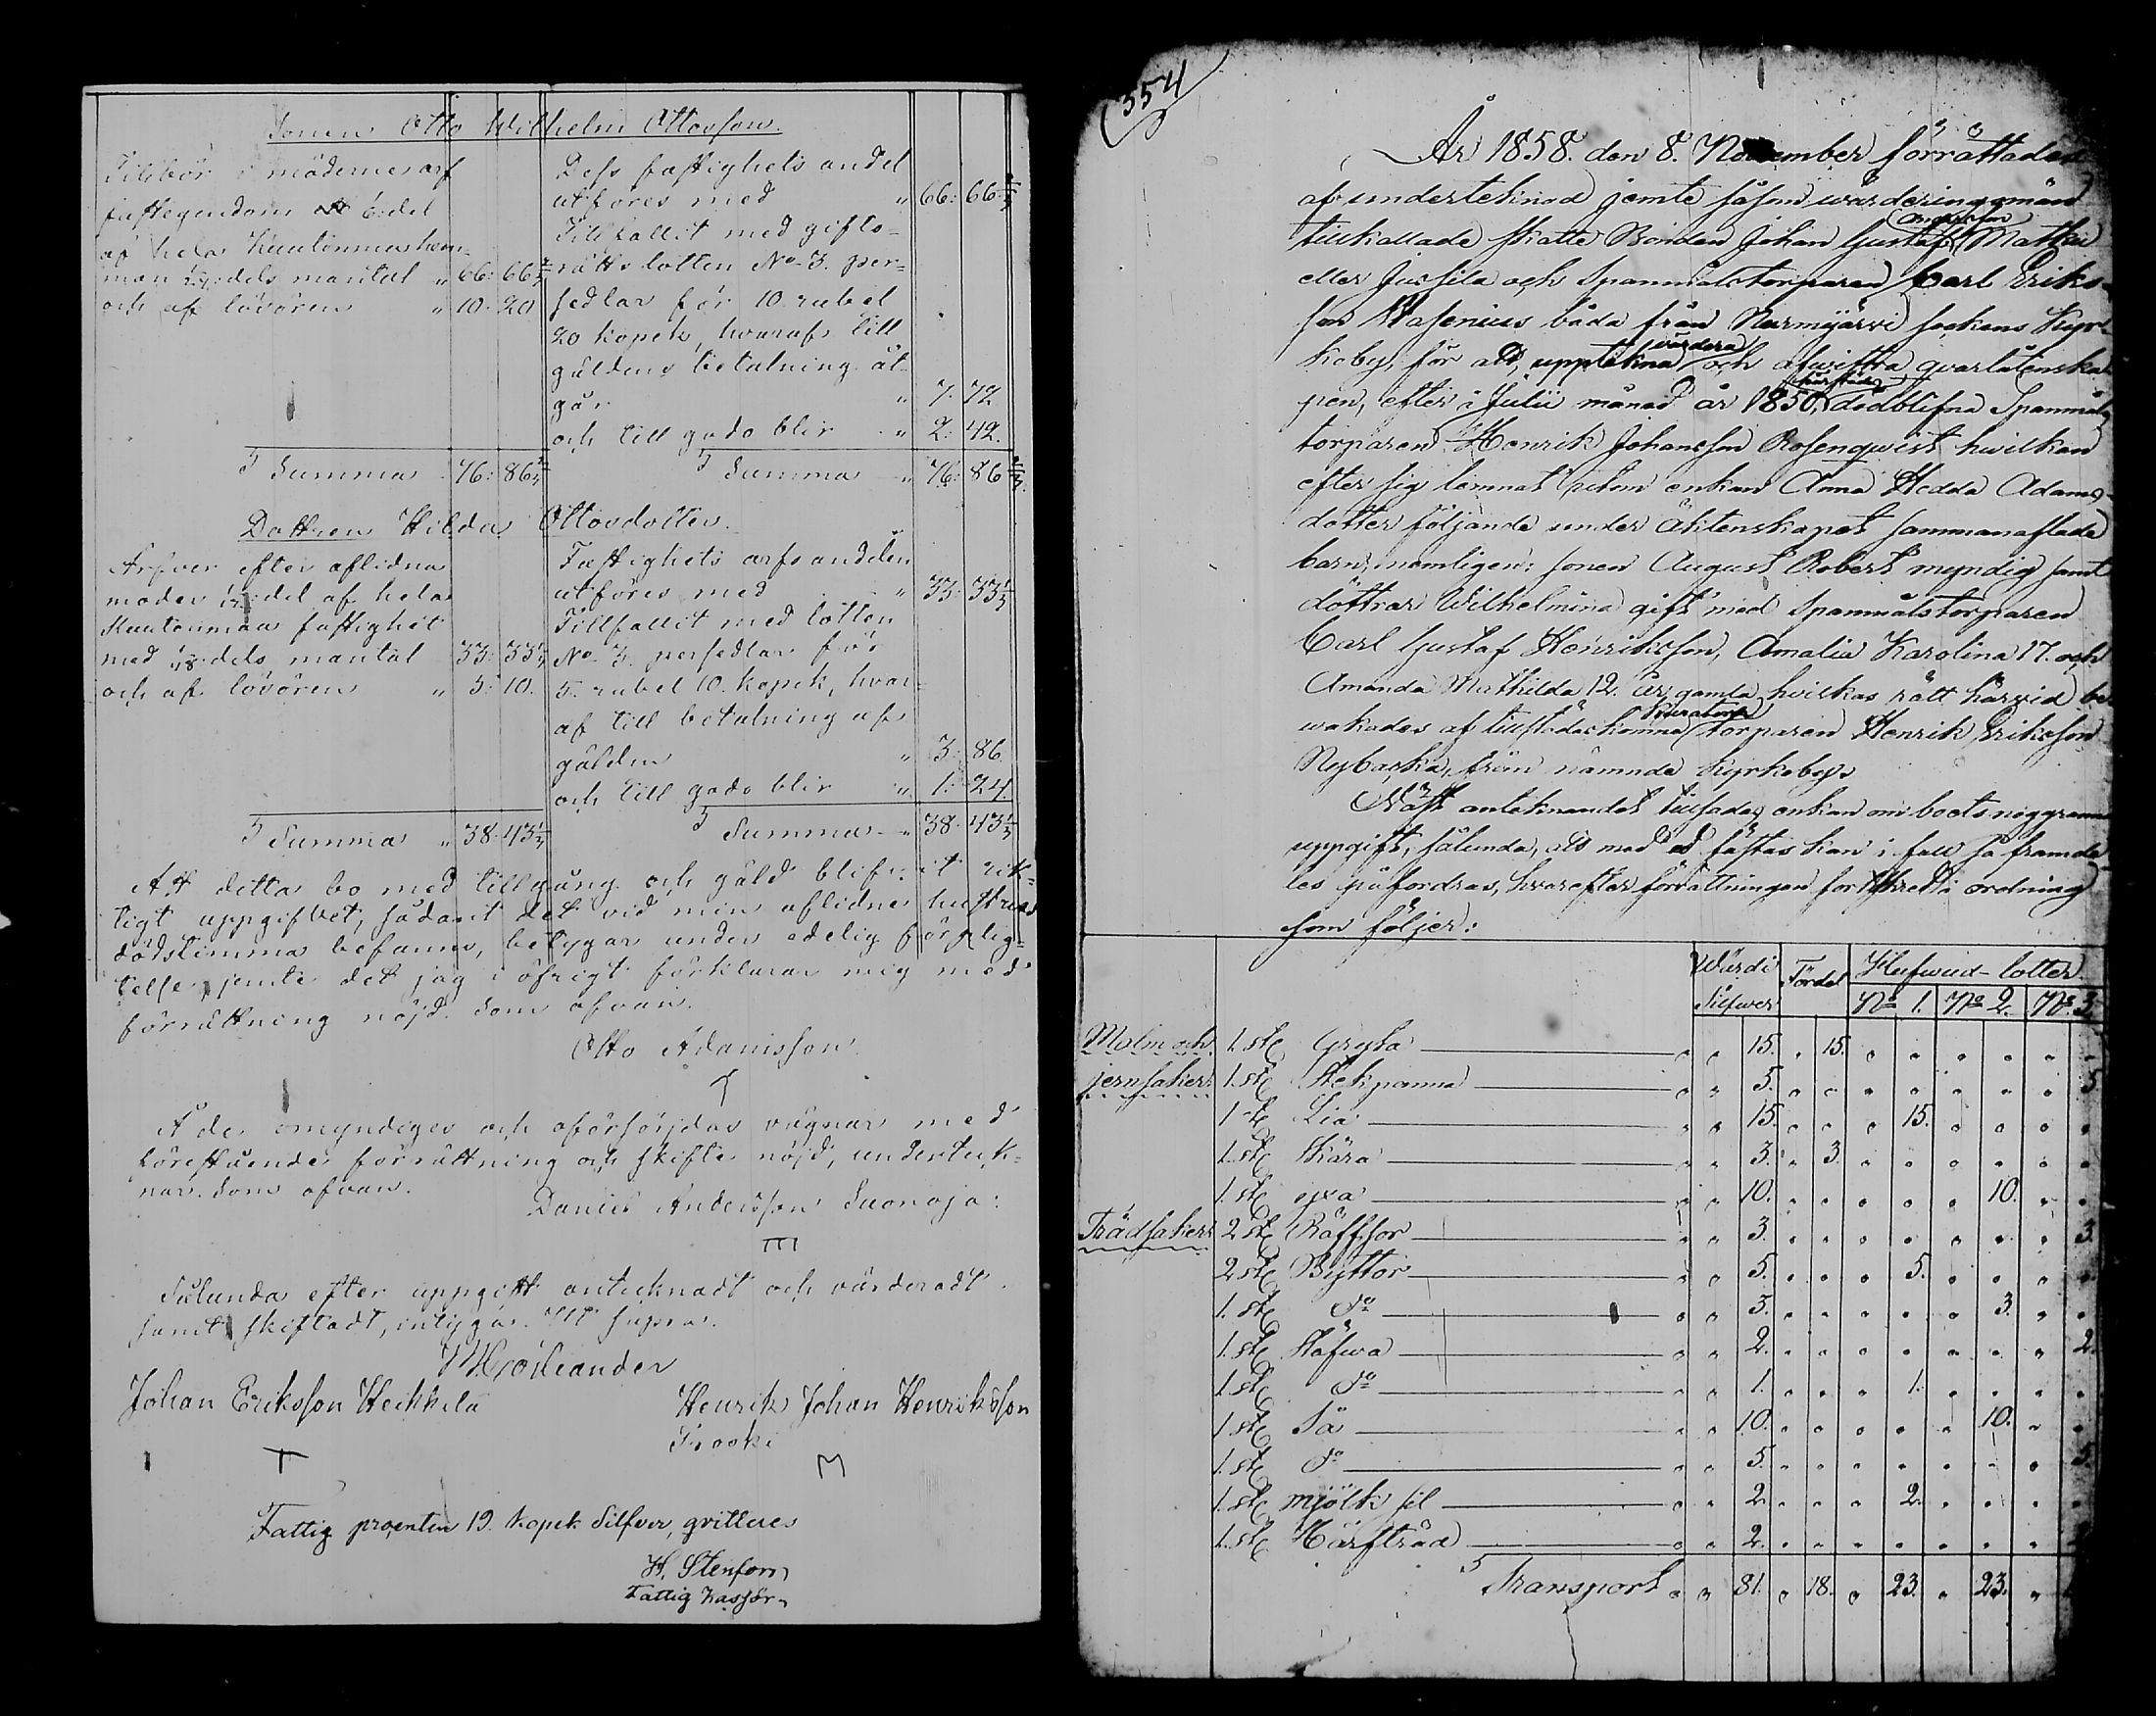 Sonen Otto Wilhelm Ottosson.
Tillhör i mödernearf
fastegendom 6:del
af hela Kuutinmaa hem=
man dels mantal " 66: 66 2/3
och af lösören " 10. 20
Summa 76: 86 2/3
Dess fastighets andel
utföres med " 66: 66 2/3
Tillfallit med gifto=
rätts lotten No 3. per=
sedlar för 10 rubel
20 kopek, hvaraf till
gäldens betalning åt=
går " 7. 72
och till godo blir " 2: 42.
Summa " 76: 86 2/3
Dottren Hilda Ottosdotter.
Arfver efter aflidna
moder del af hela
Kuutinmaa fastighet
med dels mantal 33: 33 1/3
och af lösören " 5: 10.
Summa " 38. 43 1/3
Fastighets arfsandelen
utföres med " 33: 33 1/3
Tillfallit med lotten
No 3. persedlar för
5. rubel 10. kopek, hvar=
af till betalning af
gälden " 3: 86
och till godo blir " 1: 24.
Summa " 38. 43 1/3
Att detta bo med tillgång och gäld blifvit rik=
tigt uppgifvet, sådant det vid min aflidne hustrus
dödstimma befanns, betygar under edelig förplig=
telse, jemte det jag i öfrigt förklarar mig med
förrättning nöjd. Som ofvan.
Otto Adamsson
Å de omyndiges och oförsörjdas vägnar med
förestående förrättning och skifte nöjd, underteck=
nar. Som ofvan.
Daniel Andersson Suonoja:
Sålunda efter uppgift antecknadt och värderadt
samt skiftadt, intygar. Ut supra.
Johan Eriksson Heikkilä
Henrik Johan Henriksson
Prooki
Fattig procenten 19. kopek Silfver, qvitteres
H. Stenfors
Fattig Kassör
354
År 1858. den 8. November förrättades
af undertecknad jemte såsom wärderingsmän
tillkallade Skatte Bonden Johan Gustaf Matku
eller Jussila och Spannmålstorparen Carl Eriks=
son Wasenius båda från Nurmijärvi sockens Kyr=
koby, för att, uppteckna värdera och afwittra qvarlåtenska
pen, efter i Julii månad år 1850, härstädes dödblifna Spannmåls
torparen Henrik Johansson Rosenqwist hwilken
efter sig lemnat utom enkan Anna Hedda Adams=
dotter följande under äktenskapet sammanaflade
barn, nemligen: sonen August Robert myndig samt
döttrar Wilhelmina gift med Spannmålstorparen
Carl Gustaf Henriksson, Amalia Karolina 17. och
Amanda Mathilda 12. år gamla hvilkas rätt härvid be
wakades af tillstädeskomne Kuratorn torparen Henrik Eriksson
Nybacka, från nämnde Kyrkoby.
Näst antecknandet tillsades enkan om boets noggranna
uppgift, sålunda, att med ed fästas kan i fall så framde
les påfordras, hvarefter förrättningen fortskred i ordning
som följer:
Wärdi Silfwer Fördel Hufwud-lotter
No 1. No 2. No 3.
Malm och 1. st Gryta " " 15. " 15. " " " " " "
jernsaker: 1. st Stekpanna " " 5. " " " " " " " 5.
1 st Lia " " 15. " " " 15. " " " "
1. st Skära " " 3. " 3. " " " " " "
1. st yxa " " 10. " " " " " 10. " "
Trädsaker: 2 st Räffsor " " 3. " " " " " " " 3.
2 st Byttor " " 5. " " " 5. " " " "
1. st do " " 3. " " " " " 3. " "
1. st Stäfwa " " 2. " " " " " " " 2.
1. st do " " 1. " " " 1. " " " "
1. st Så " " 10. " " " " " 10. " "
1. st do " " 5. " " " " " " " 5.
1. st mjölk sil " " 2. " " " 2. " " " "
1. st Härfträd " " 2. " " " " " " "
Transport " " 81. " 18. " 23. " 23. "